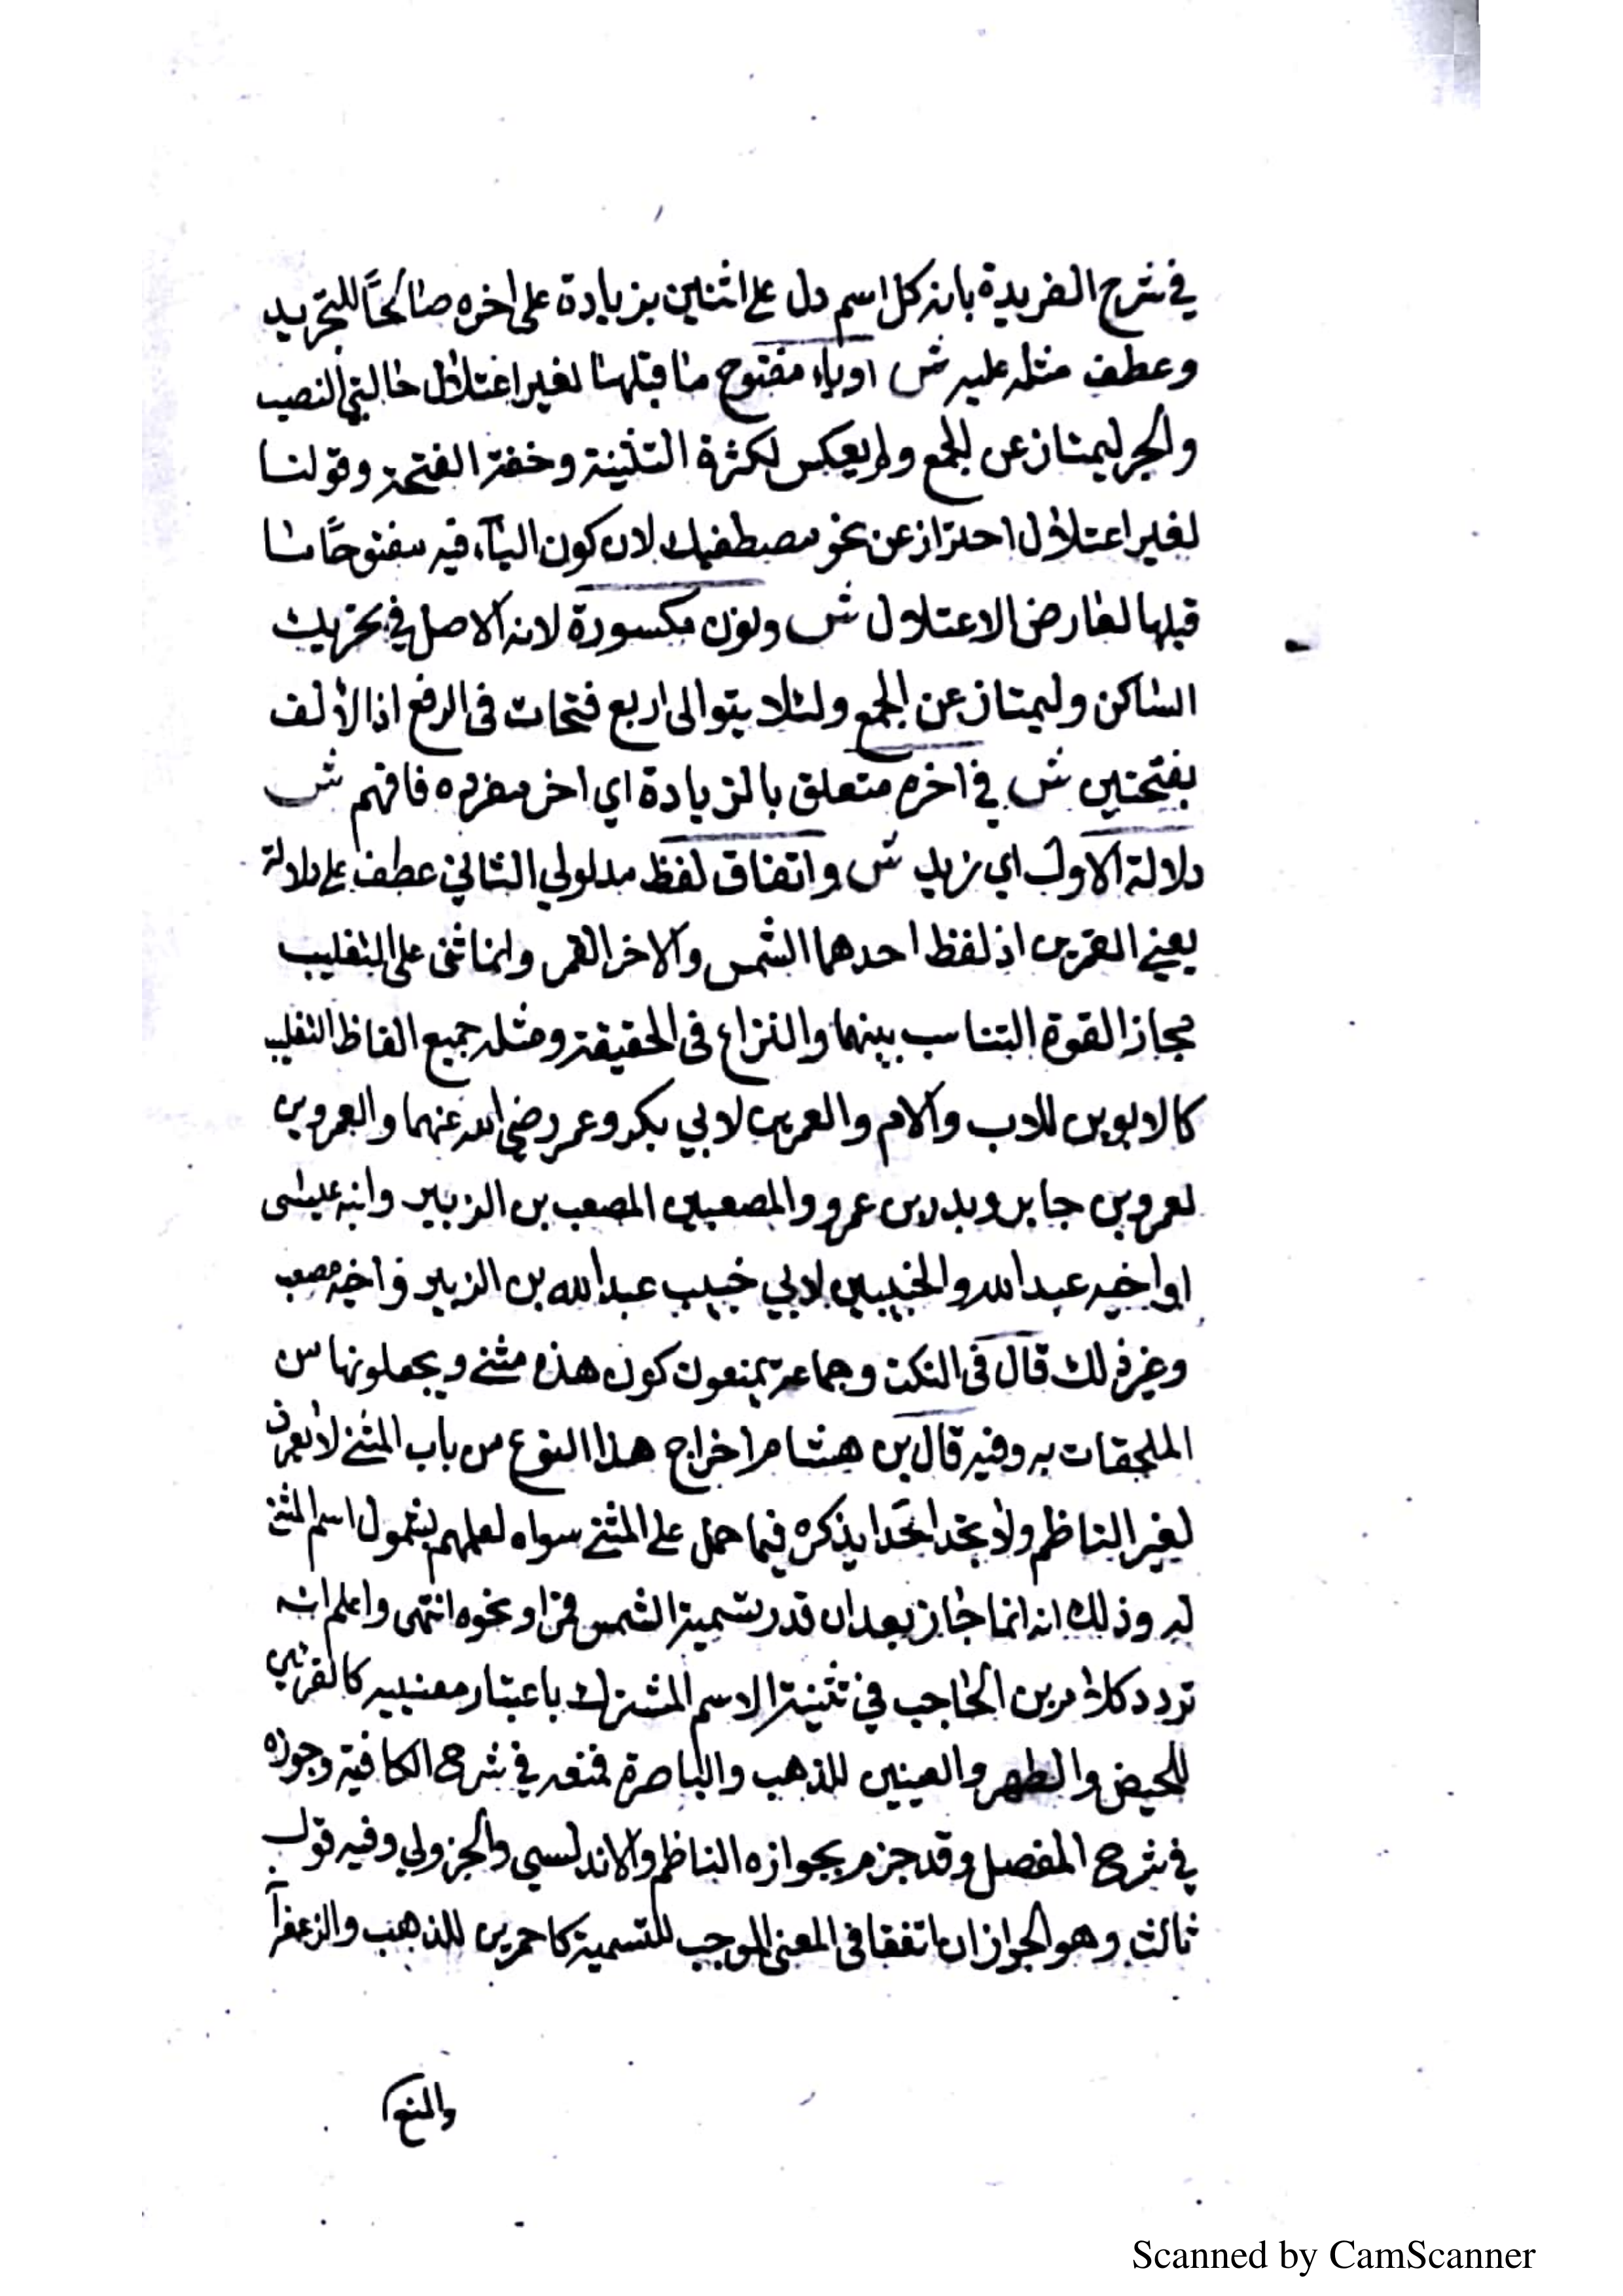 في شرح الفريدة بانه كل اسم دل على اثنين بزيادة على اخره صالحًا للتجريد
وعطف مثله عليه ش اوياء مفتوح ما قبلها لغير اعتلال حالتي النصب
والجر ليمتاز عن الجمع ولم يعكس لكثرة التثنية وخفة الفتحة وقولنا
لغير اعتلال احتراز عن نحو مصطفيك لان كون اليآء فيه مفتوحًا ما
قبلها لعارض الاعتلال ش ونون مكسورة لانه الاصل في تحريك
الساكن وليمتاز عن الجمع ولئلا يتوالى اربع فتحات في الرفع اذ الالف
بفتحتين ش في اخره متعلق بالزيادة اي اخر مفرده فافهم ش
دلالة الاول اي زيد ش واتفاق لفظ مدلولي الثاني عطف على دلالة
يعني القمرين اذ لفظ احدهما الشمس والاخر القمر وانما ثنى على التغليب
مجاز القوة التناسب بينهما والنزاع في الحقيقة ومثله جميع الفاظ التغليب
كالابوين للاب والام والعمرين لابي بكر وعمر رضي الله عنهما والعمروين
لعمرو بن جابر وبدر بن عمرو والمصعبين المصعب بن الزبير وابنه عيسى
او اخيه عبد الله والخبيبين لابي خبيب عبد الله بن الزبير واخيه مصعب
وغير ذلك قال في النكت وجماعة يمنعون كون هذه مثنى ويجعلونها من
الملحقات به وفيه قال بن هشام اخراج هذا النوع من باب المثنى لا يعرف
لغير الناظم ولا تجد احدا يذكره فيما حمل على المثنى سواه لعلمهم بشمول اسم المثنى
له وذلك انه انما جاز بعد ان قدر تسمية الشمس قمرا ونحوه انتهى واعلم انه
تردد كلام بن الحاجب في تثنية الاسم المشترك باعتبار معنييه كالقرئين
للحيض والطهر والعينين للذهب والباصرة فمنعه في شرح الكافية وجوزه
في شرح المفصل وقد جزم بجوازه الناظم والاندلسي والجزولي وفيه قول
ثالث وهو الجواز ان اتفقا في المعنى الموجب للتسمية كاحمرين للذهب والزعفرآ
والمنع
Scanned by CamScanner